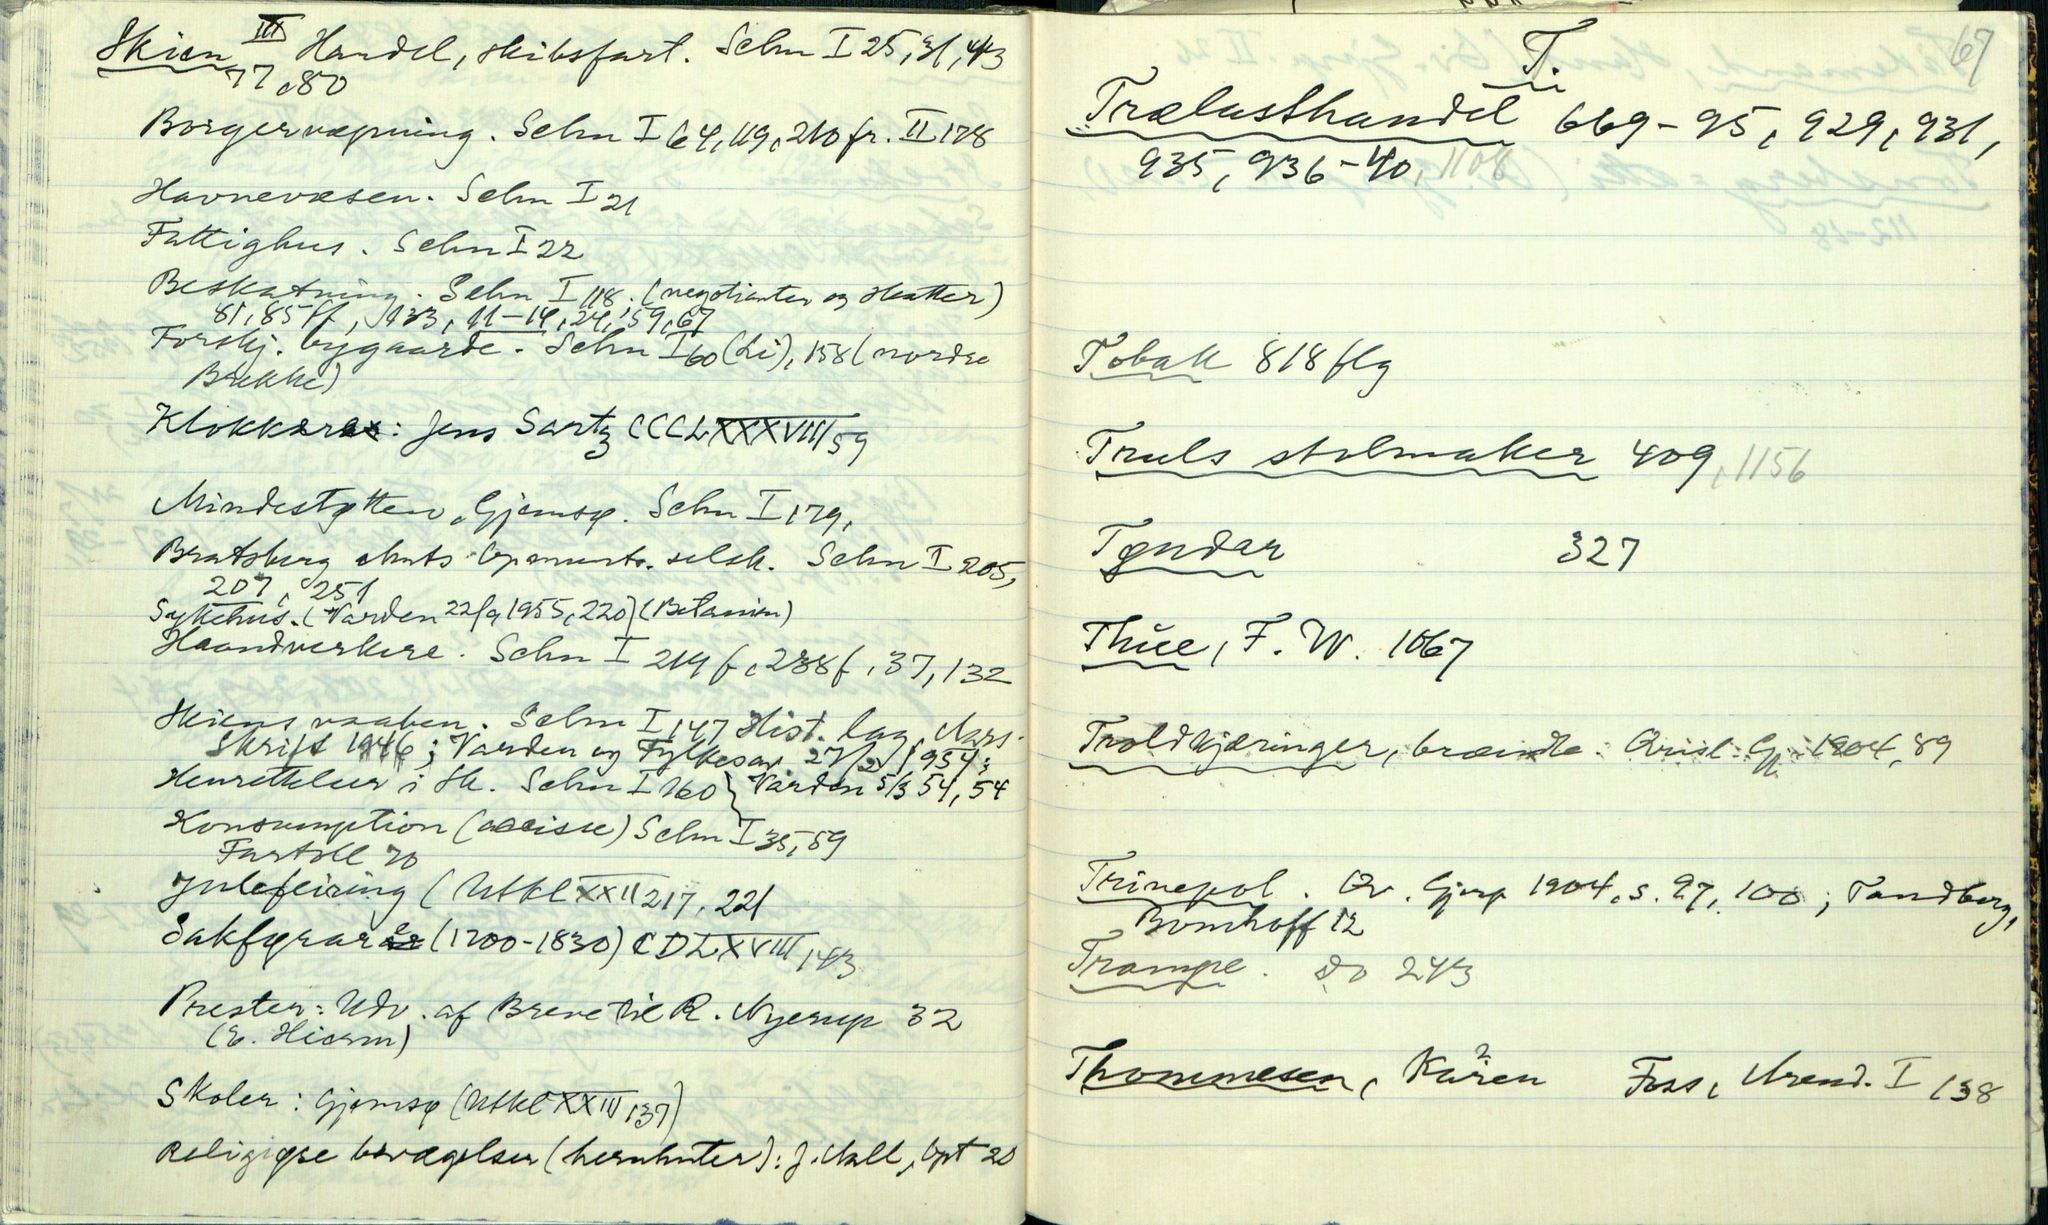 Skien III Handel, skibsfart. Schn I 25, 31, 443
77, 80
Borgervæpning. Schn I 64, 119, 210 fr. II 178
Havnevæsen. Schn I 21
Fattighus. Schn I 22
Beskatning. Schn I 118. (negotianter og skatter)
81, 85 ff, 133, 11-14, 24, 59, 67
Forskj. bygaarde. Schn I 60 (Li), 158 (nordre
Brekke)
Klokkere: Jens Sartz CCCLXXXVIII 59
Mindestøtten, Gjemsø. Schn I 179,
Bratsberg amts opmunts. selsk. Schn I 205,
207, 251
Sykehus. (Varden 22/9 1955, 220) (Betanien)
Haandverkere. Schn I 214 f, 238 f, 37, 132
Skiens vaaben. Schn I 147 Hist. lag, Aars-
skrift 1946; Varden og Fylkesav. 27/2 1954;
Henrettelser i Sk. Schn I 160 Varden 5/3 54, 54
Konsumption (accisse) Schn I 35, 59
Førtoll 70
Julefeiring (Utkl XXII 217, 221
Sakførarar (1700-1830) CDLXVIII 143
Prester: Udv. af Breve til R. Nyerup 32
(E. Hiorm)
Skoler: Gjemsø (Utkl XXIII 137)
Religiøse bevægelser (hernhuter): J. Aall, Opt 20
67
T.
Trælasthandel 669-95, 929, 931,
935, 936-40, 1108
Tobak 818 flg
Truls stolmaker 409, 1156
Tøndar 327
Thue, F. W. 1067
Troldkjæringer, brændte. Qvisl. Gj. 1904, 89
Trinepol. Qv. Gjerp 1904, s. 97, 100; Tandberg,
Bomhoff 12
Trampe. do 243
Thommesen, Karen Foss, Arend. I 138